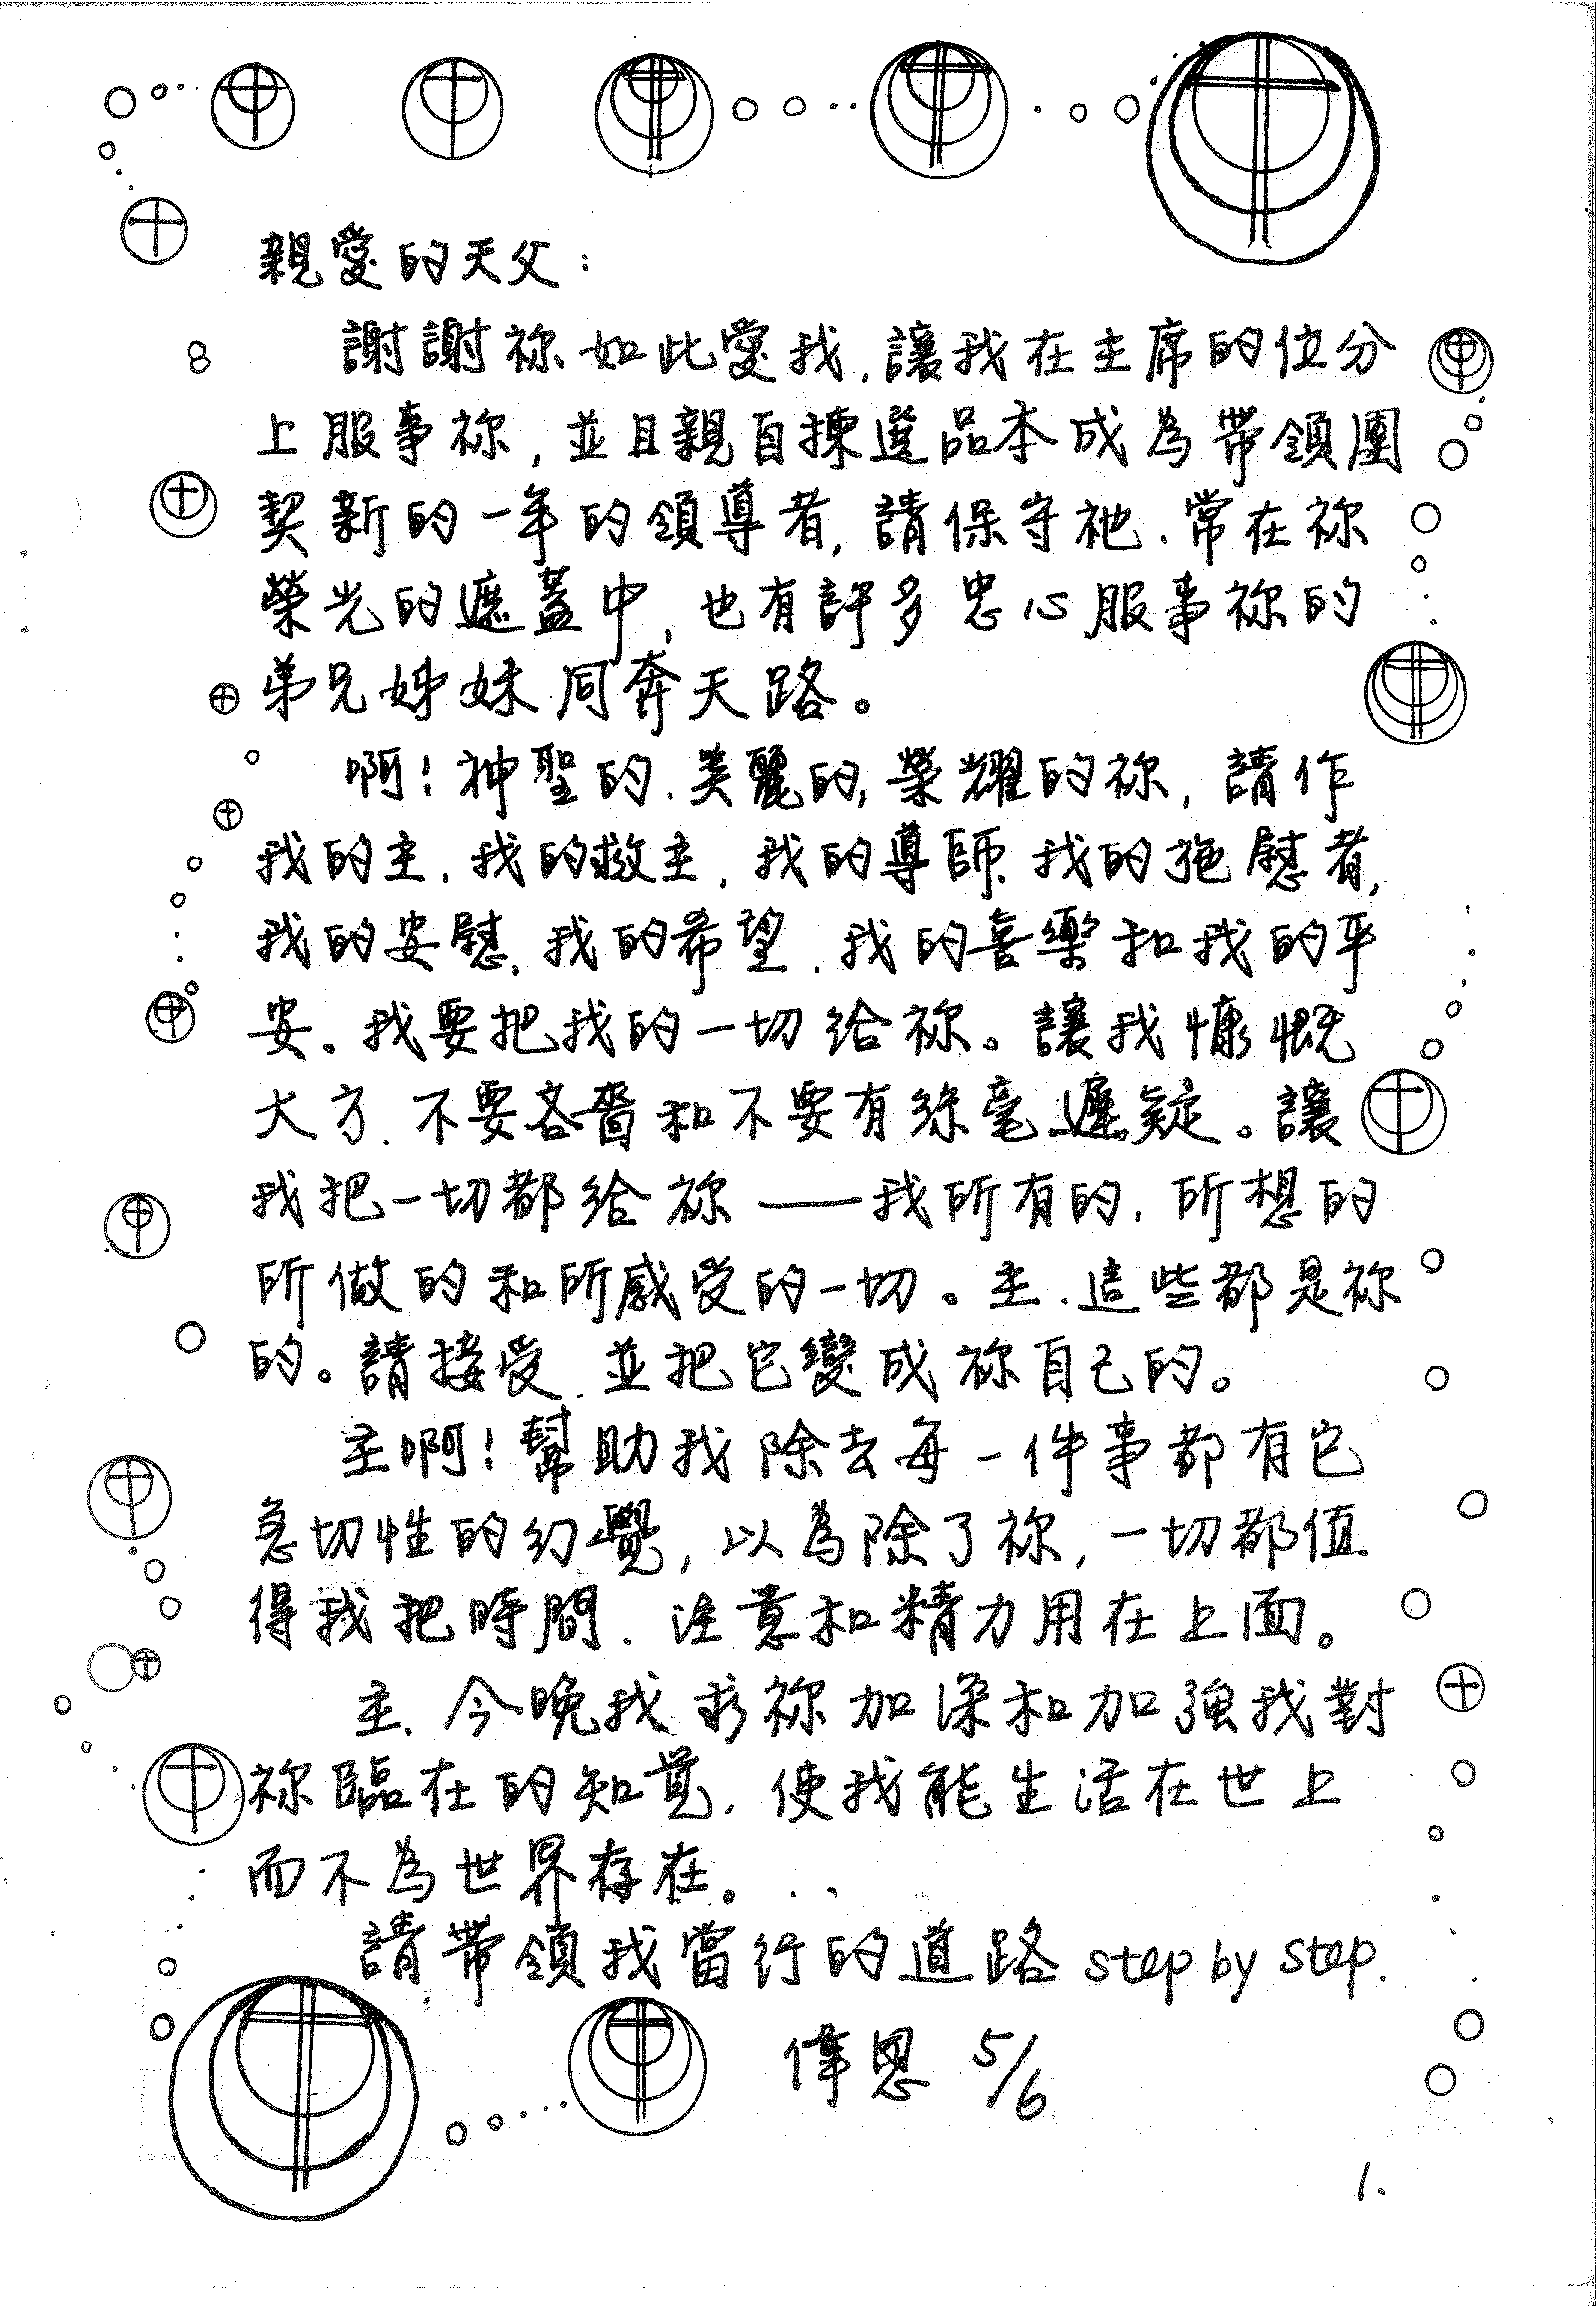 親愛的天父：
謝謝祢如此愛我，讓我在主席的位分
上服事祢，並且親自揀選品本成為帶領團
契新的一年的領導者，請保守祂、常在祢
榮光的遮蓋中，也有許多忠心服事祢的
弟兄姊妹同奔天路。
啊！神聖的、美麗的，榮耀的祢，請作
我的主、我的救主、我的導師、我的施慰者，
我的安慰、我的希望、我的喜樂和我的平
安。我要把我的一切給祢。讓我慷慨
大方、不要吝嗇和不要有絲毫遲疑。讓
我把一切都給祢——我所有的、所想的
所做的和所感受的一切。主、這些都是祢
的。請接受、並把它變成祢自己的。
主啊！幫助我除去每一件事都有它
急切性的幻覺，以為除了祢，一切都值
得我把時間、注意和精力用在上面。
主、今晚我求祢加深和加強我對
祢臨在的知覺，使我能生活在世上
而不為世界存在。
請帶領我當行的道路 step by step.
偉恩 5/6
1.